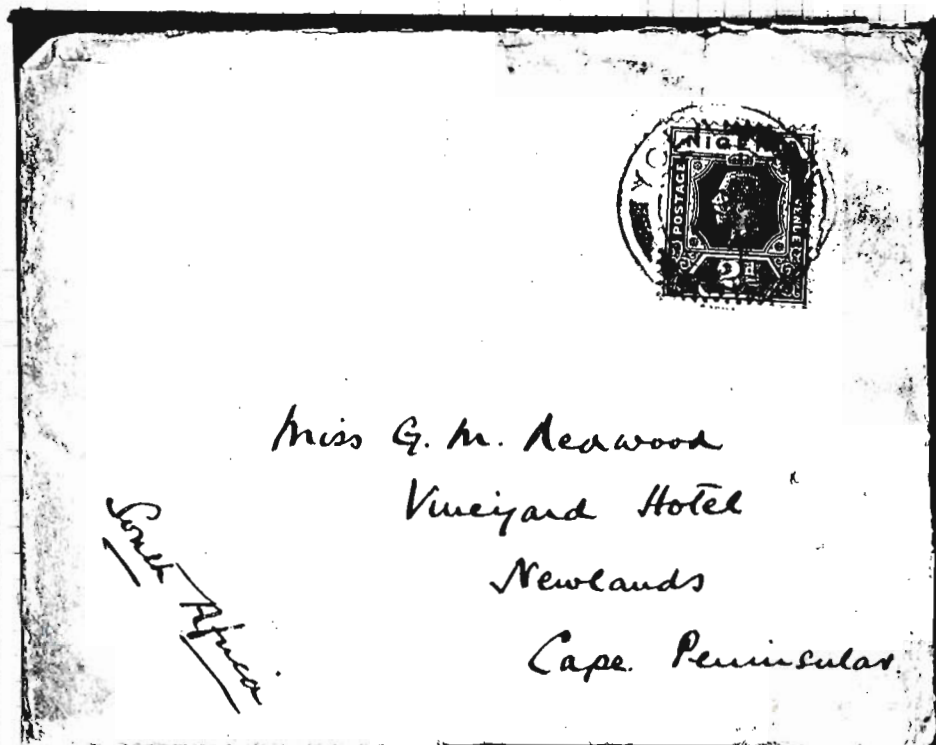 NIGE
POSTAGE
2d
Miss G. M. Redwood
Vineyard Hotel
Newlands
Cape Peninsular.
South Africa